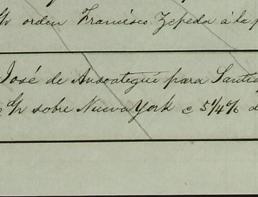 orden Francisco Zepeda á la
José de Ansoategui para
sobre Nueva York @ 5 1/4 %